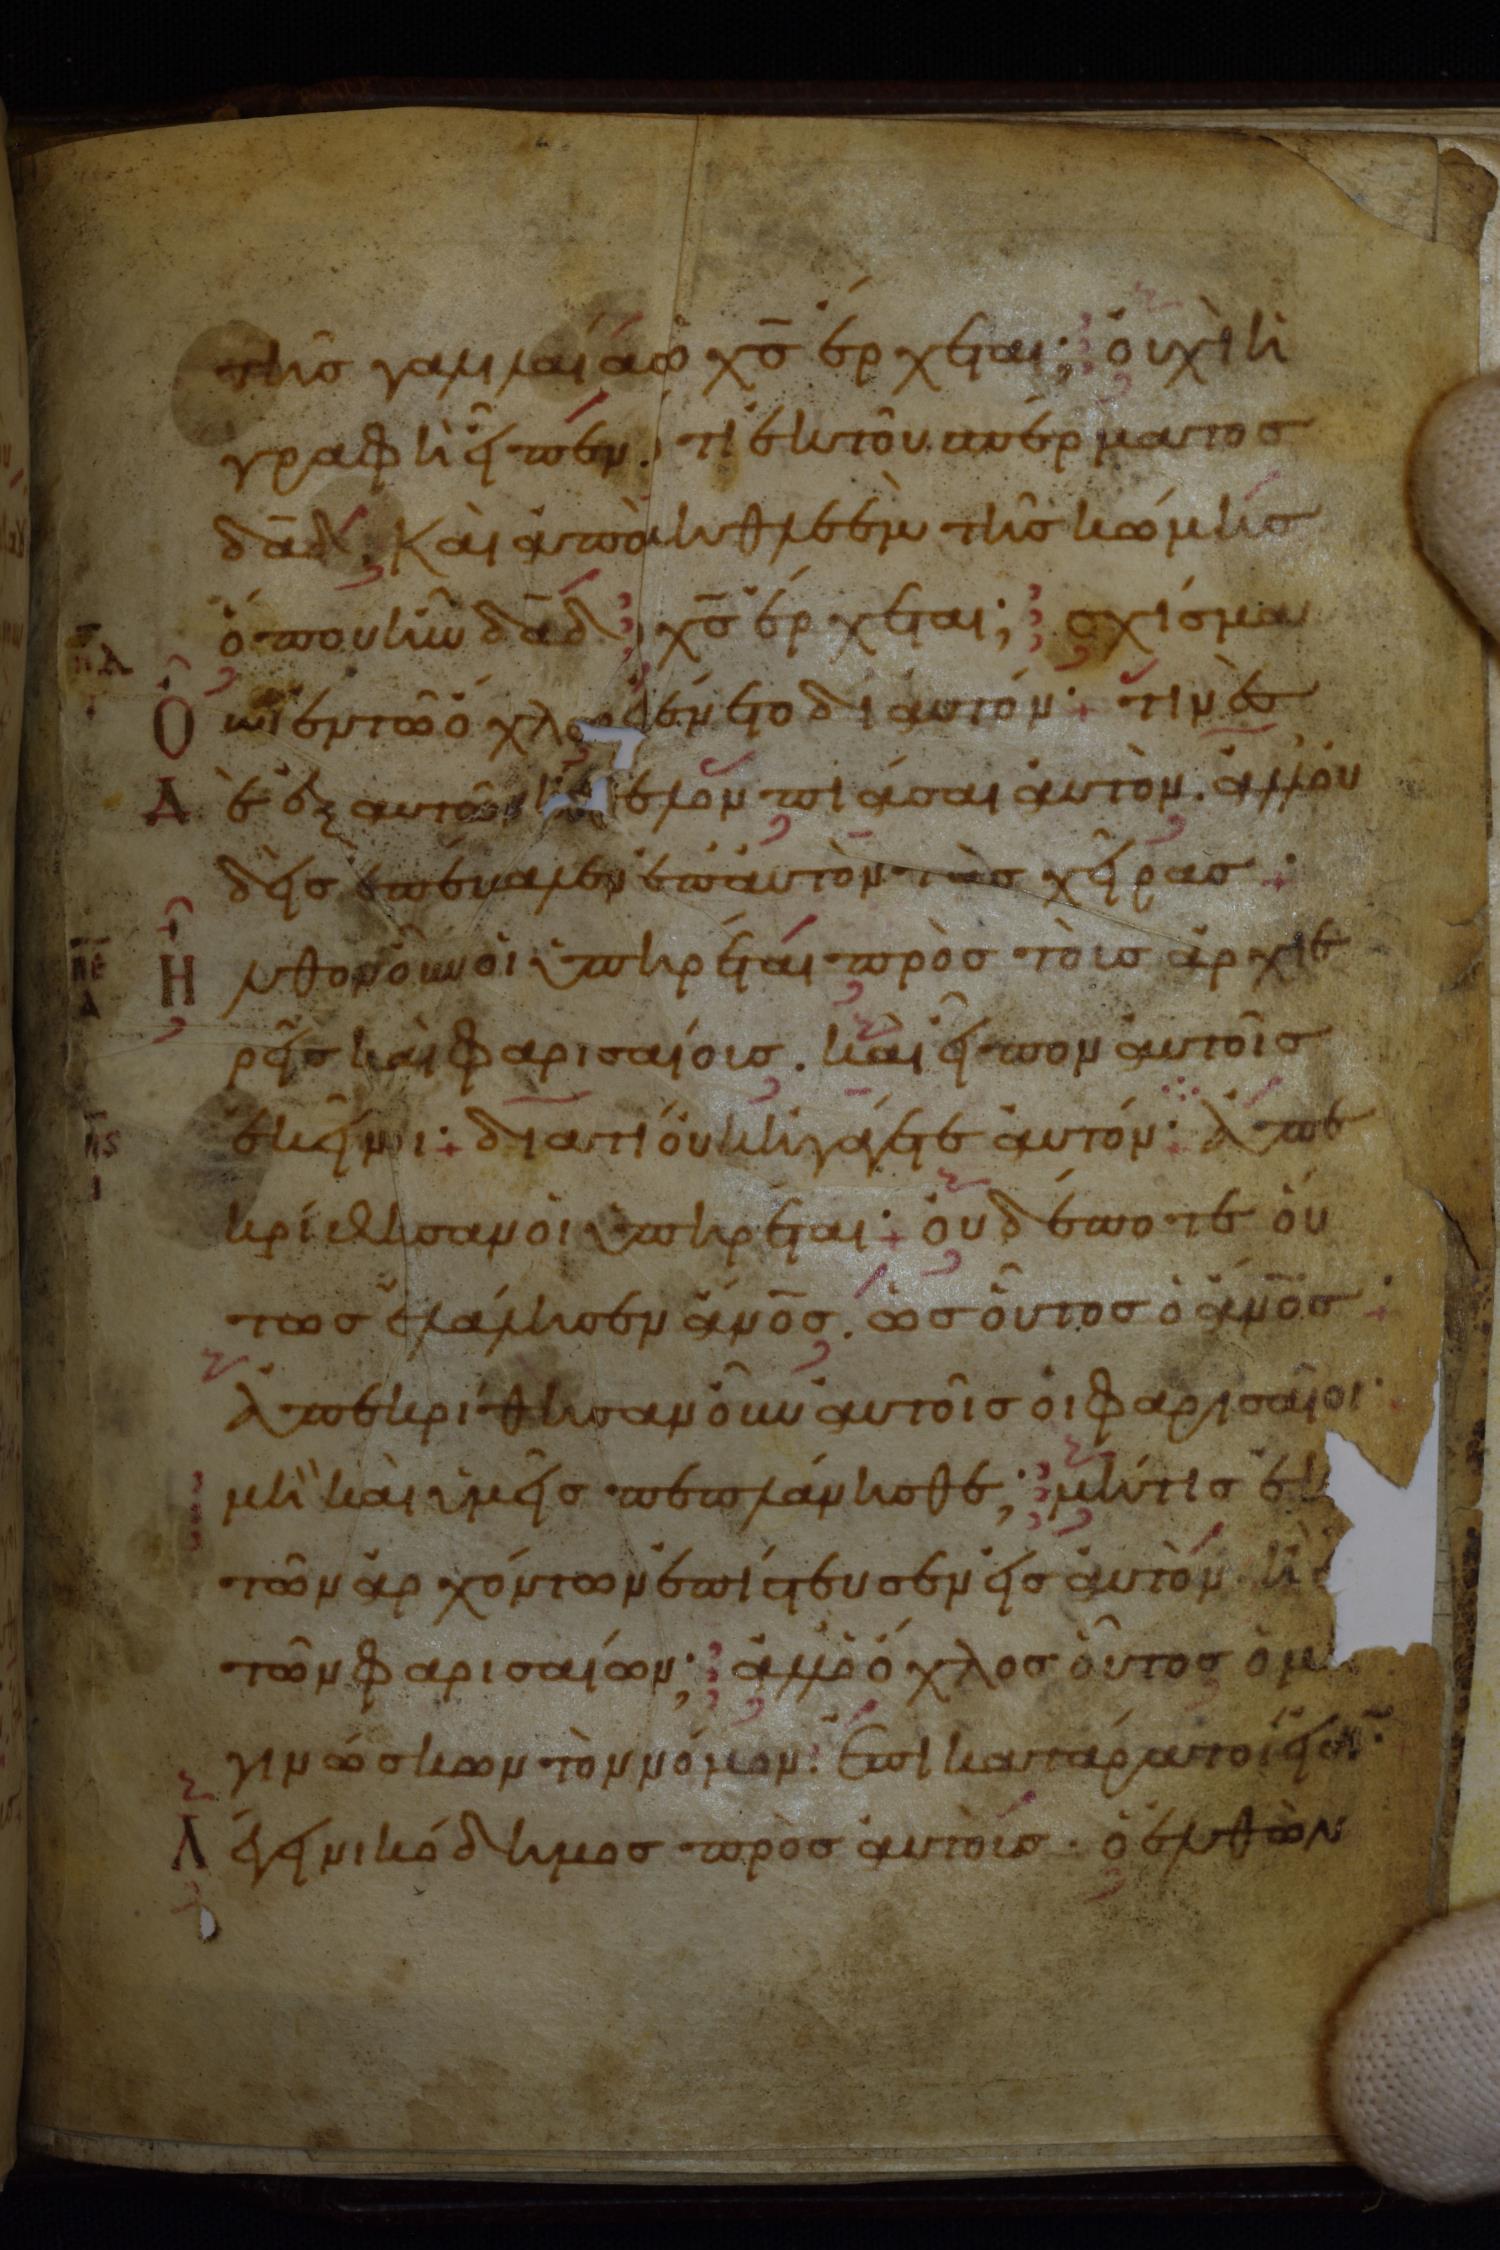 τῆς γαλιλαίας ὁ χς̄ ἔρχεται; οὐχὶ ἡ
γραφὴ εἶπεν. ὅτι ἐκ τοῦ σπέρματος
δᾱδ. καὶ ἀπὸ βηθλεὲμ τῆς κώμης
ὅπου ἦν δᾱδ, χς̄ ἔρχεται; σχίσμα
Ὂ οὖν ἐν τῶ ὄχλω ἐγένετο δι αὐτόν· τινὲς
Δ ὲ ἐξ αὐτῶν ἤθελον πιάσαι αὐτὸν. ἀλλ οὐ
δεὶς ἐπέβαλεν ἐπ αὐτὸν τὰς χεῖρας·
Ἦ λθον οὖν οἱ ὑπηρέται πρὸς τοὺς ἀρχιε
ρεῖς καὶ φαρισαίους. καὶ εἶπον αὐτοῖς
ἐκεῖνοι· διατί οὐκ ἠγάγετε αὐτόν· ἀπε
κρίθησαν οἱ ὑπηρέται· οὐδέποτε οὕ
τως ἐλάλησεν ἄνος̄. ὡς οὗτος ὁ ἄνος̄·
ἀπεκρίθησαν οὖν αὐτοῖς οἱ φαρισαῖοι·
μὴ καὶ ὑμεῖς πεπλάνησθε; μήτις ἐκ
τῶν ἀρχόντων ἐπίστευσεν εἰς αὐτὸν. ἢ ἐ
τῶν φαρισαίων; ἀλλ ὁ ὄχλος οὗτος ὁ μὴ
γινώσκων τὸν νόμον. ἐπικατάρατοί εἰσιν·
Λ έγει νικόδημος πρὸς αὐτούς. ὁ ἐλθὼν